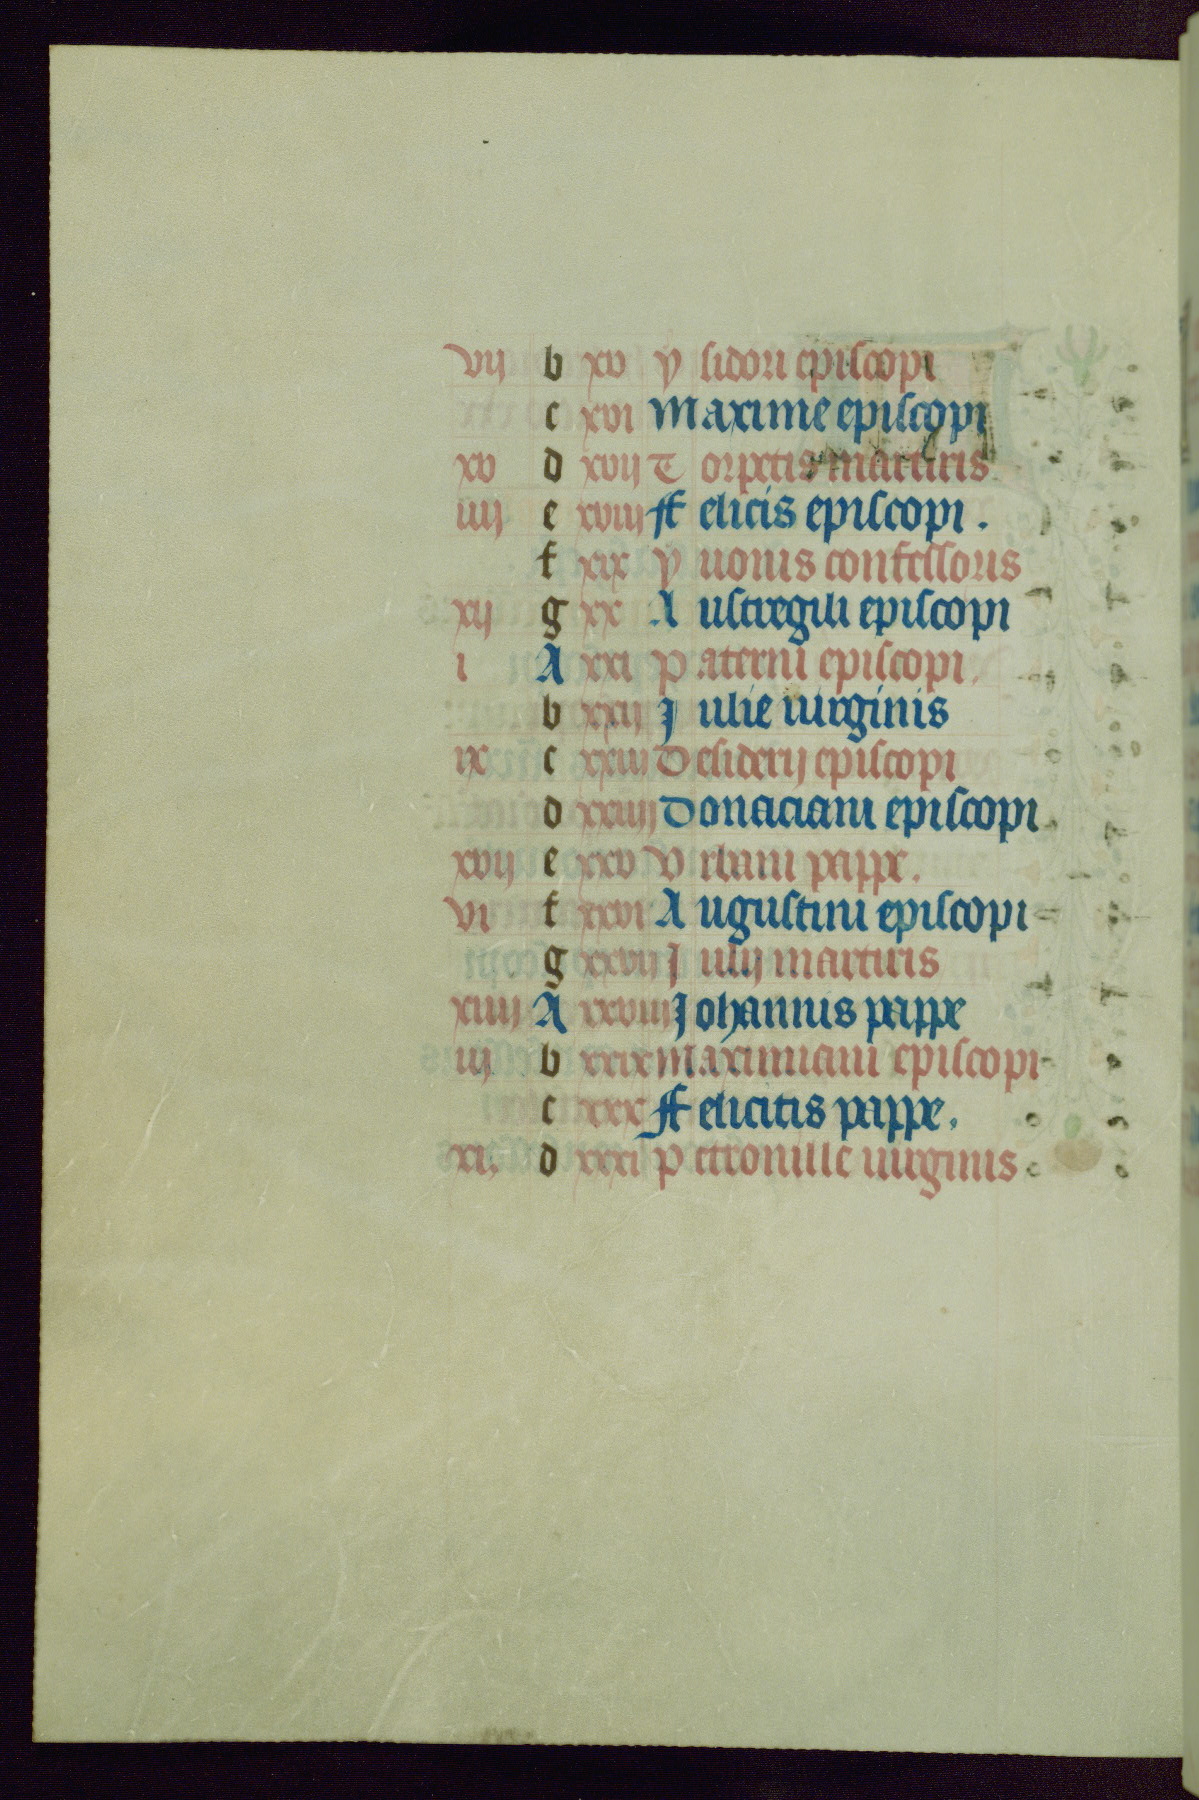 vij b xv Ysidori episcopi
c xvi Maxime episcopi
xv d xvij Torpetis martiris
iiij e xviij ffelicis episcopi.
f xix Yuonis confessoris
xij g xx Austregili episcopi
i A xxi Paterni episcopi.
b xxij Julie uirginis
ix c xxiij Desiderij episcopi
d xxiiij Donaciani episcopi
xvij e xxv Urbani pappe.
vi f xxvi Augustini episcopi
g xxvij Julij martiris
xiiij A xxviij Johannis pappe
iij b xxix Maximiani episcopi
c xxx ffelicitis pappe.
xi. d xxxi Petronille uirginis